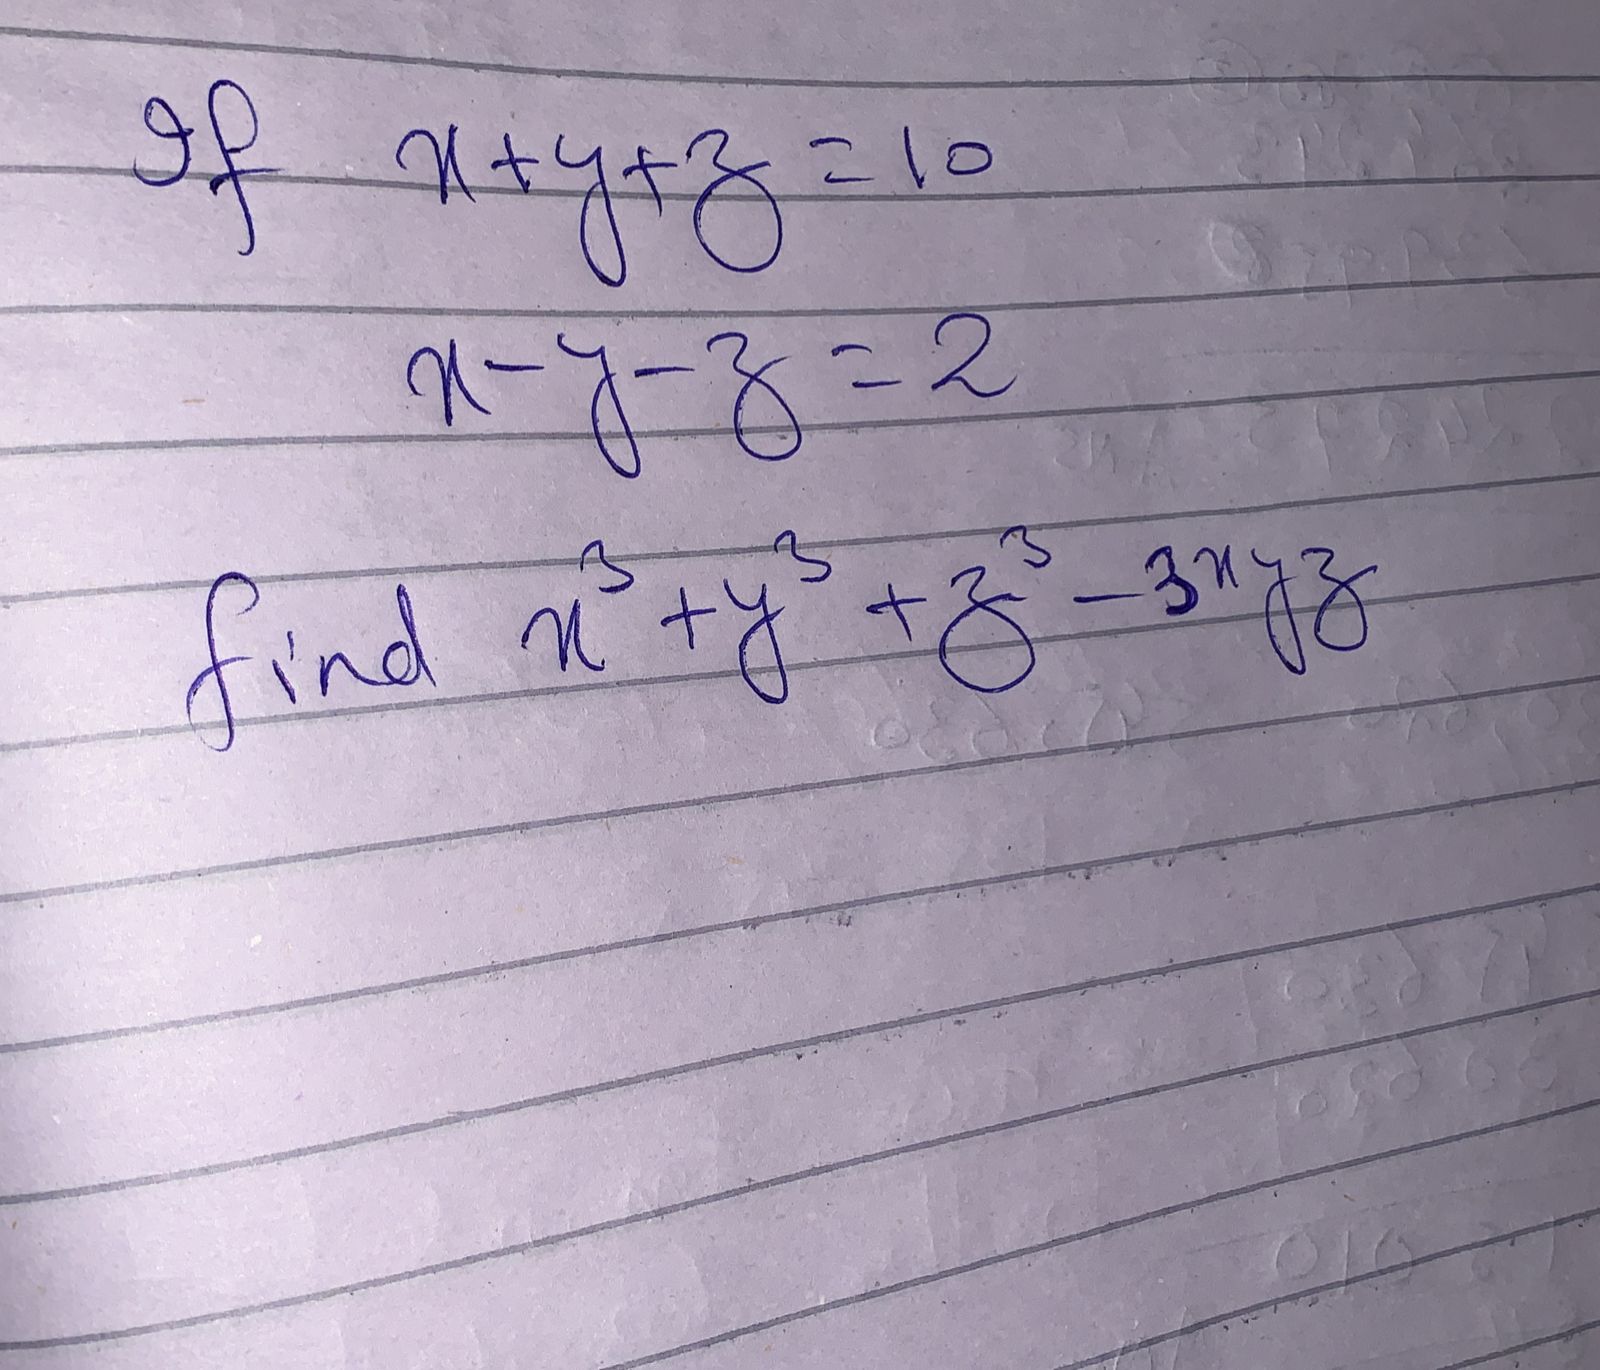 If x+y+z=10
x-y-z=2
find x³+y³+z³-3xyz